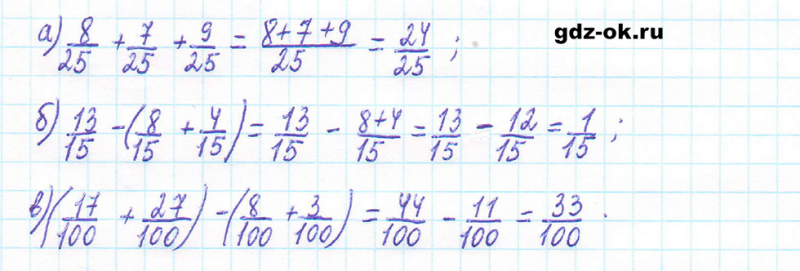 gdz-ok.ru
а) 8/25 + 7/25 + 9/25 = (8+7+9)/25 = 24/25 ;
б) 13/15 - (8/15 + 4/15) = 13/15 - (8+4)/15 = 13/15 - 12/15 = 1/15 ;
в) (17/100 + 27/100) - (8/100 + 3/100) = 44/100 - 11/100 = 33/100 .